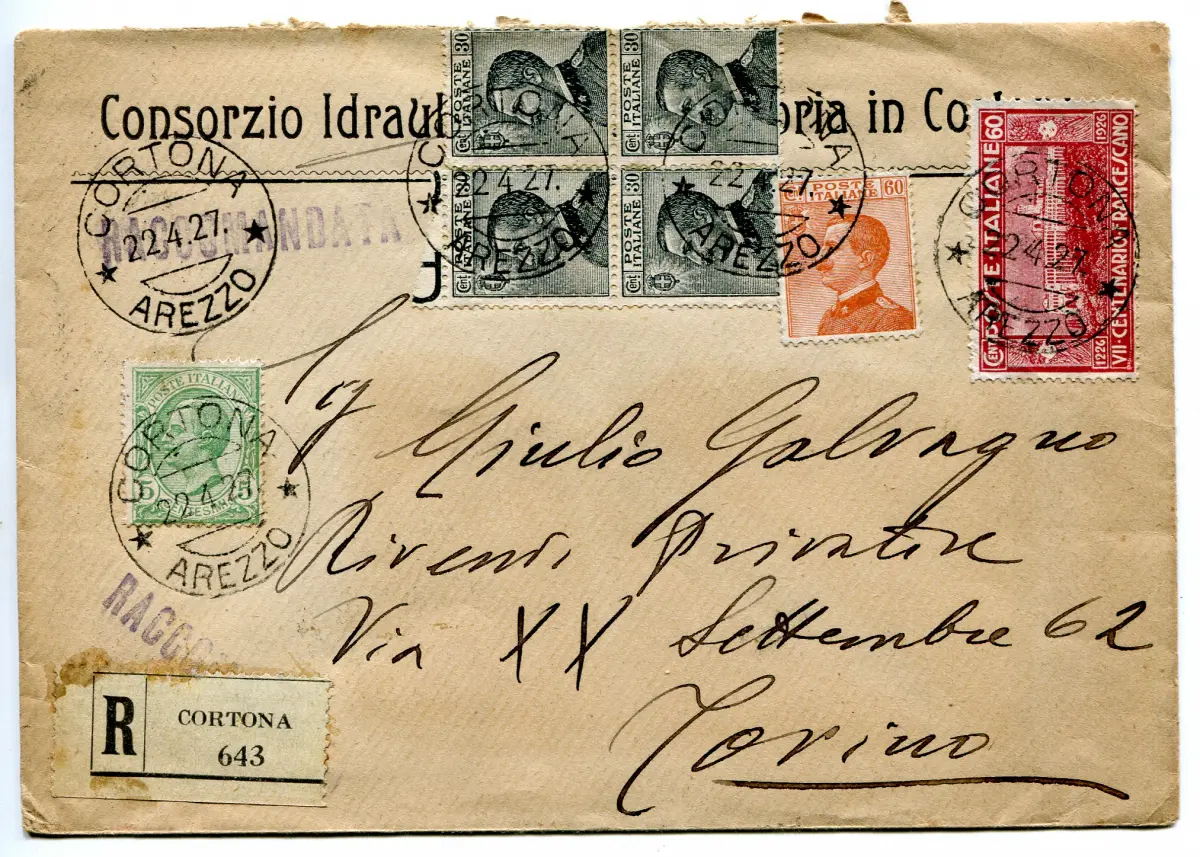 Consorzio Idraul oria in Co
CORTONA
22.4.27.
AREZZO
RACCOMANDATA
POSTE ITALIANE
Cent. 30
POSTE ITALIANE
Cent. 30
POSTE ITALIANE
Cent. 30
POSTE ITALIANE
Cent. 30
CORTONA
22.4.27.
AREZZO
CORTONA
22.4.27.
AREZZO
POSTE ITALIANE
60
POSTE ITALIANE 60
CENT
1226 1926
VII·CENTENARIO FRANCESCANO
CORTONA
22.4.27.
AREZZO
POSTE ITALIANE
5 5
CENTESIMI
CORTONA
22.4.27
AREZZO
Sig Giulio Galvagno
Rivend. Privative
Via XX Settembre 62
Torino
RACCO
R
CORTONA
643